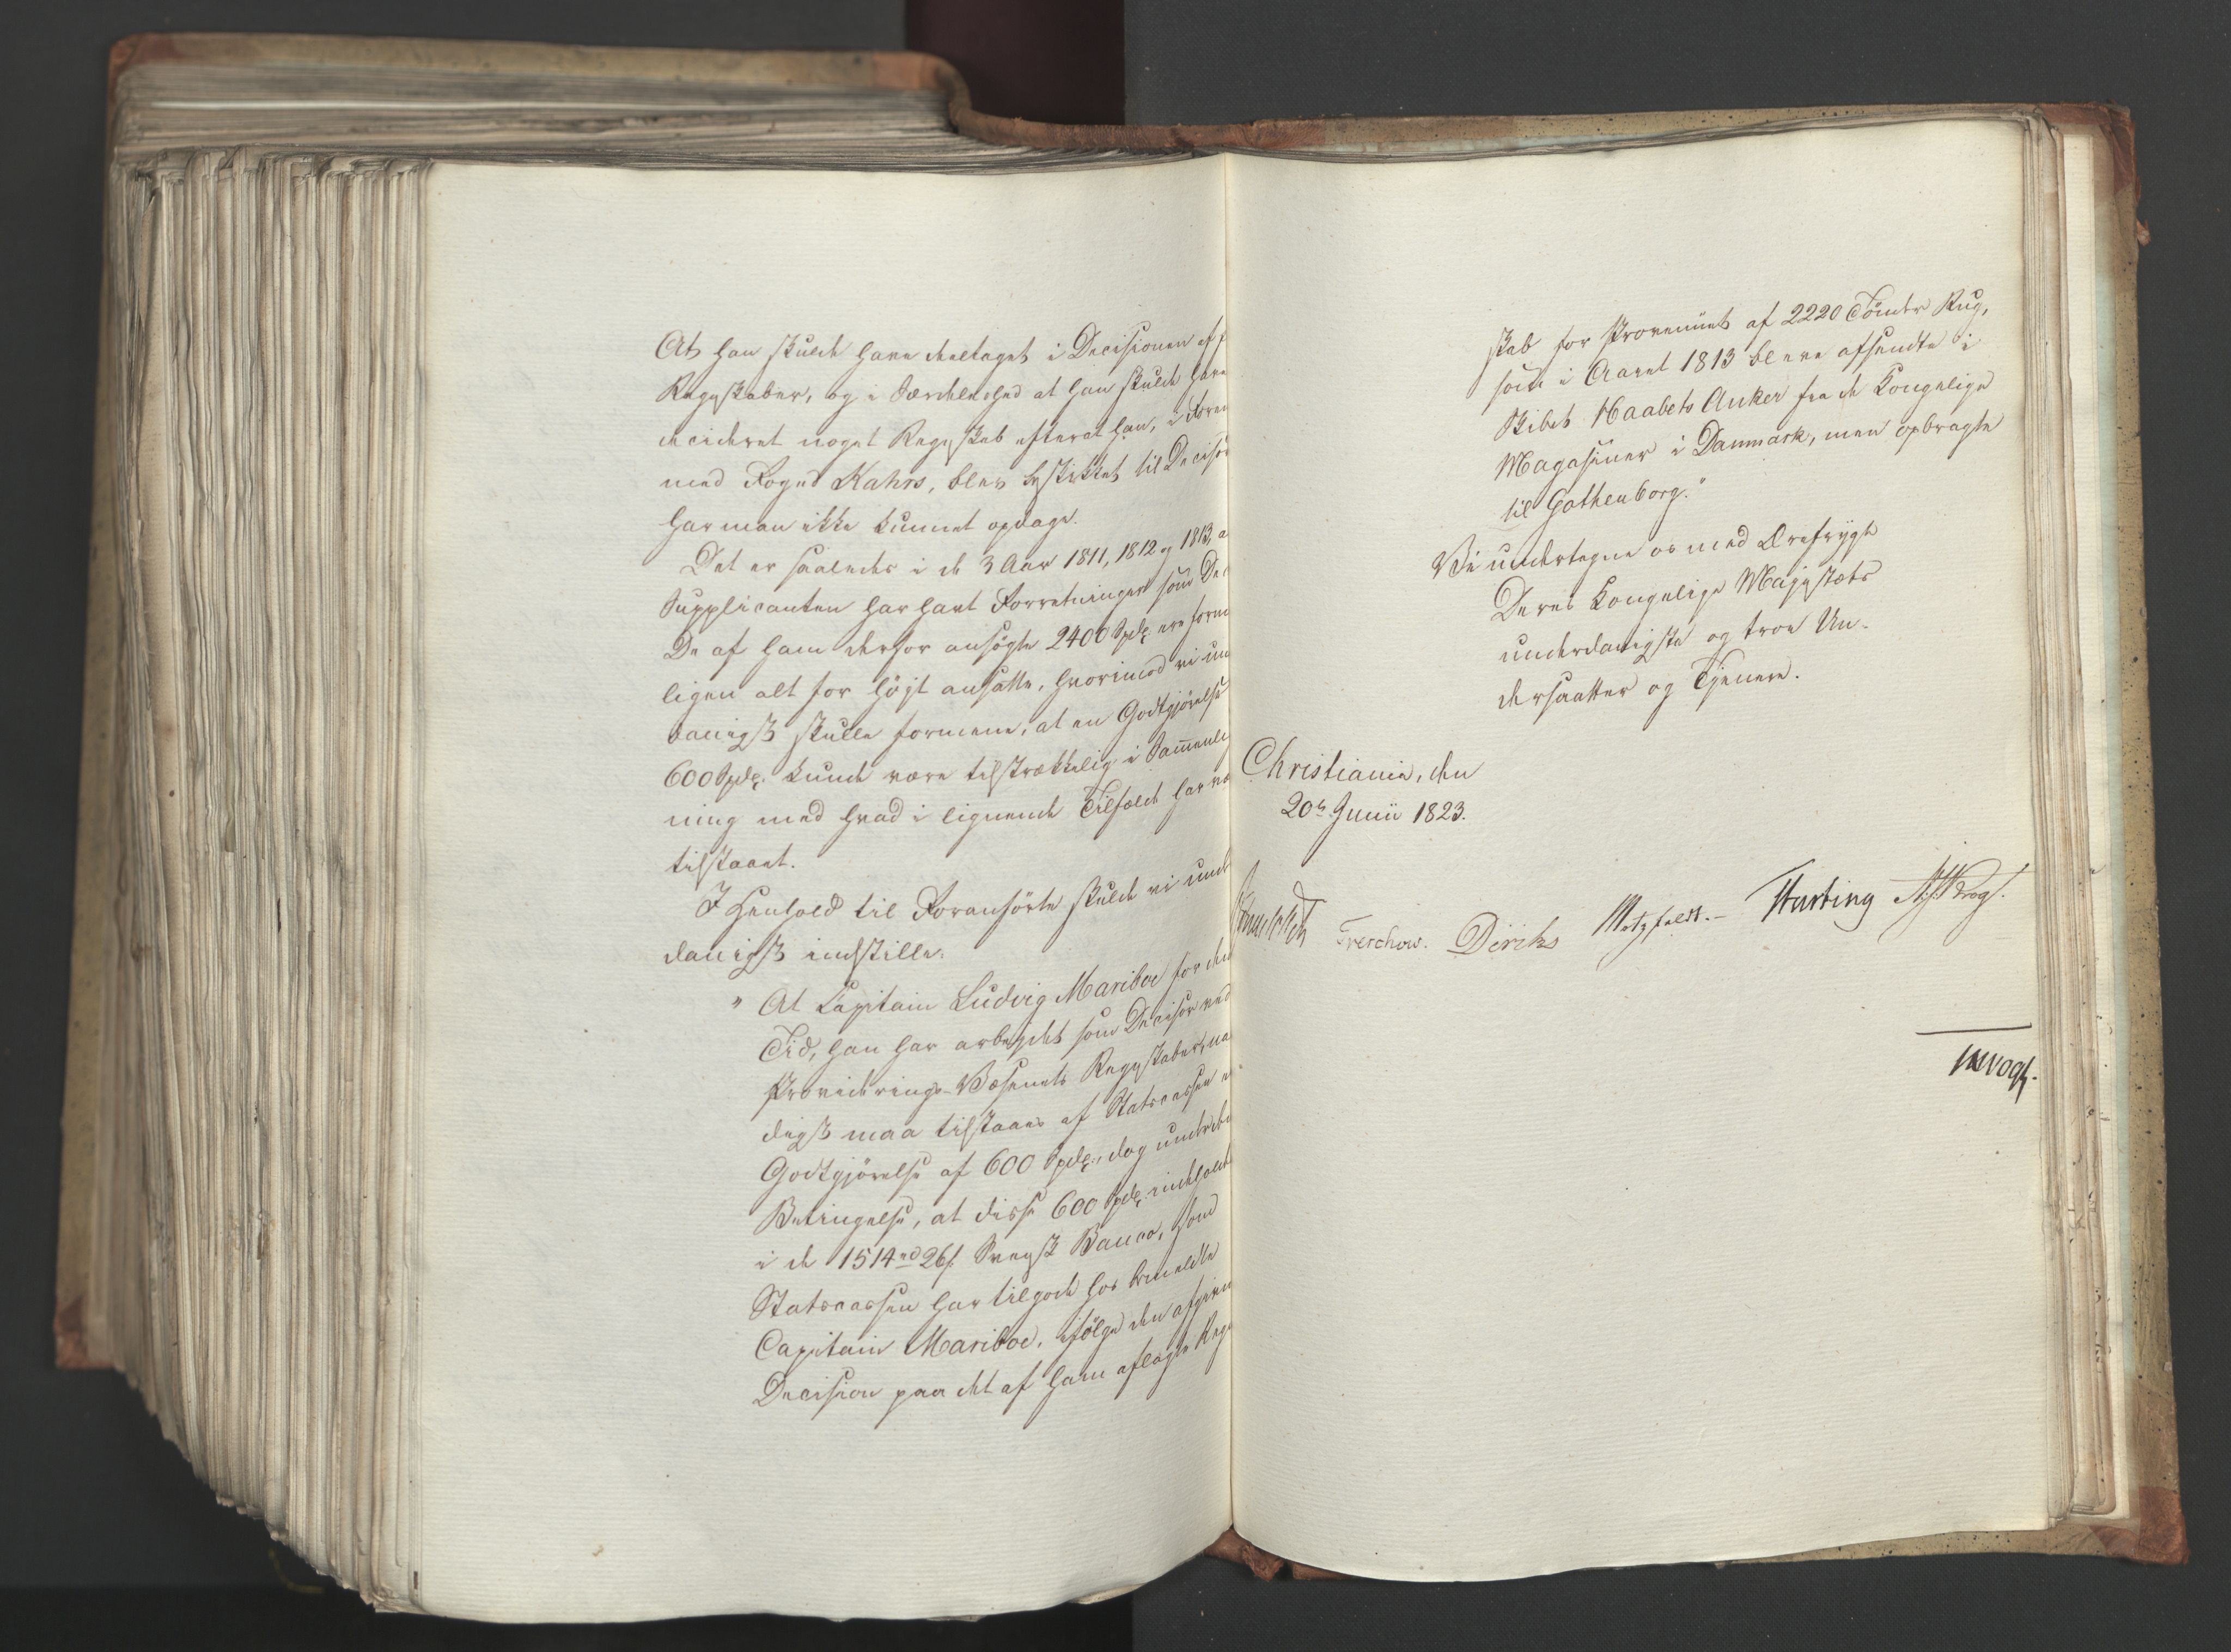 At han skulde have deeltaget i Decisionen af
Regnskaber, og i Særdeleshed at han skulde have
decideret noget Regnskab efterat han, i Foren
med Foged Kahrs, blev beskikket til Decisor
har man ikke kunnet opdage.
Det er saaledes i de 3 Aar 1811, 1812 og 1813, a
Supplicanten har havt Forretninger som De
De af ham derfor ansøgte 2400 Spd. ere forme
ligen alt for høit ansatte, hvorimod vi un
danigst skulle formene, at en Godtgjørelse
600 Spd. kunde være tilstrækkelig i Sammenlig
ning med hvad i lignende Tilfælde har væ
tilstaaet.
I Henhold til Foranførte skulde vi unde
danigst indstille:
" At Capitain Ludvig Mariboe for den
Tid, han har arbeidet som Decisor ved
Provideringsvæsenets Regnskaber, naa
digst maa tilstaaes af Statscassen e
Godtgjørelse af 600 Spd., dog under de
Betingelse, at disse 600 Spd. indeholdes
i de 1514 rd 26 s. Svensk Banco, som
Statscassen har tilgode hos bemeldte
Capitain Mariboe, ifølge den afgivn
Decision paa det af ham aflagte Regn
skab for Provenüet af 2220 Tönder Rug,
som i Aaret 1813 bleve afsendte i
Skibet Haabets Anker fra de Kongelige
Magasiner i Danmark, men opbragte
til Gothenborg."
Vi undertegne os med Ærefrygt
Deres Kongelige Majestæts
underdanigste og troe Un-
dersaatter og Tjenere.
Christiania, den
20de Junii 1823.
Treschow. Diriks Motzfeldt. Hasting Krog.